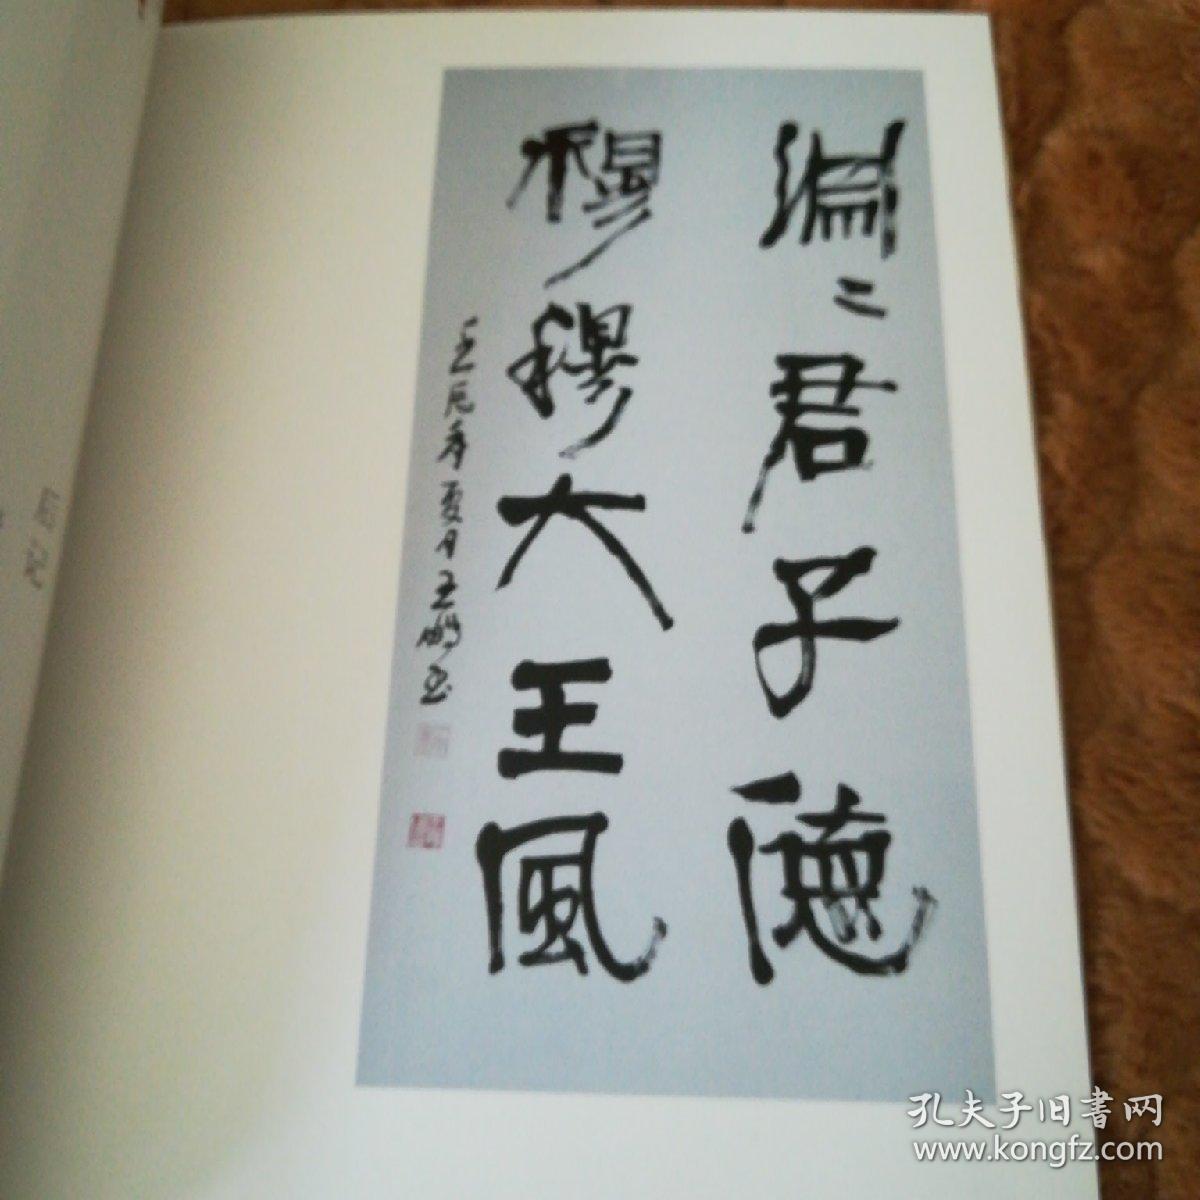 淵〻君子德
穆穆大王風
壬辰年夏月王鹏玉
后记
孔夫子旧書网
www.kongfz.com